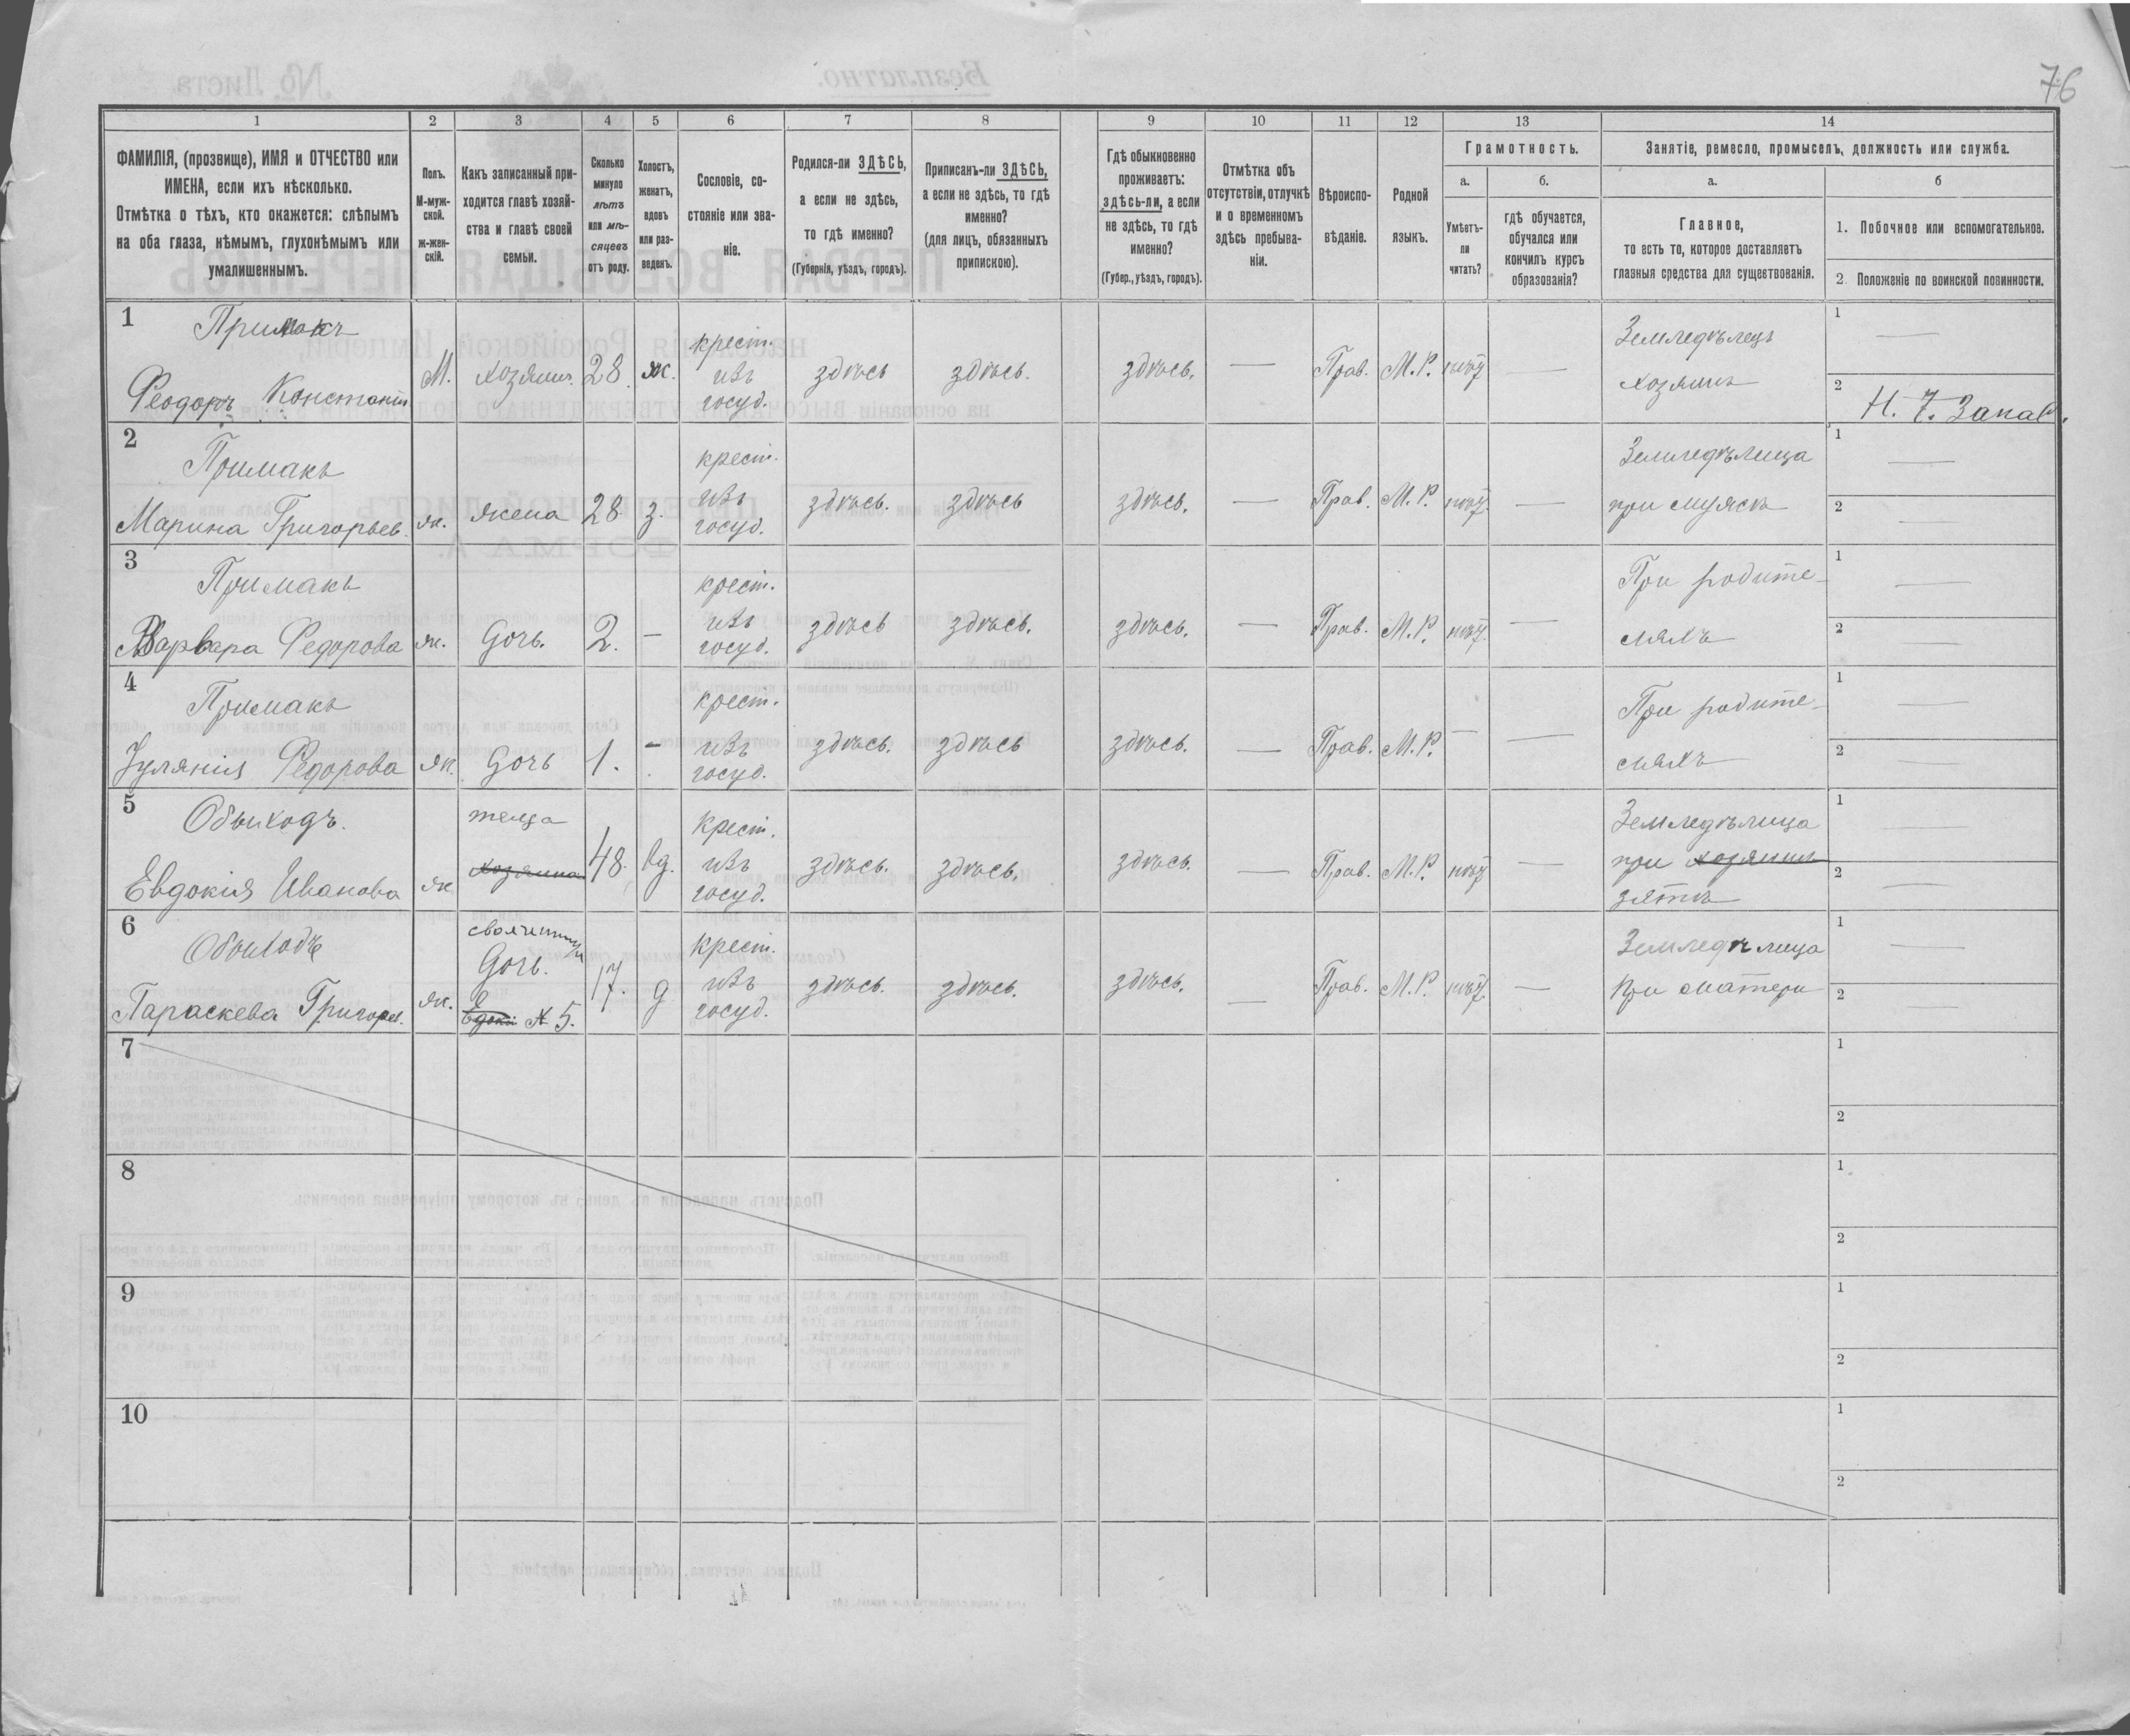 76
1 2 3 4 5 6 7 8 9 10 11 12 13 14
ФАМИЛІЯ, (прозвище), ИМЯ и ОТЧЕСТВО или
ИМЕНА, если ихъ нѣсколько.
Отмѣтка о тѣхъ, кто окажется: слѣпымъ
на оба глаза, нѣмымъ, глухонѣмымъ или
умалишеннымъ.
Полъ.
М-муж-
ской.
ж-жен-
скій.
Какъ записанный при-
ходится главѣ хозяй-
ства и главѣ своей
семьи.
Сколько
минуло
лѣтъ
или мѣ-
сяцевъ
отъ роду.
Холостъ,
женатъ,
вдовъ
или раз-
веденъ.
Сословіе, со-
стояніе или зва-
ніе.
Родился-ли ЗДѢСЬ,
а если не здѣсь,
то гдѣ именно?
(Губернія, уѣздъ, городъ).
Приписанъ-ли ЗДѢСЬ,
а если не здѣсь, то гдѣ
именно?
(для лицъ, обязанныхъ
припискою).
Гдѣ обыкновенно
проживаетъ:
здѣсь-ли, а если
не здѣсь, то гдѣ
именно?
(Губер., уѣздъ, городъ).
Отмѣтка объ
отсутствіи, отлучкѣ
и о временномъ
здѣсь пребыва-
ніи.
Вѣроиспо-
вѣданіе.
Родной
языкъ.
Грамотность.
а.
Умѣетъ-
ли
читать?
б.
гдѣ обучается,
обучался или
кончилъ курсъ
образованія?
Занятіе, ремесло, промыселъ, должность или служба.
а.
Главное,
то есть то, которое доставляетъ
главныя средства для существованія.
б
1. Побочное или вспомогательное.
2. Положеніе по воинской повинности.
1
Примакъ
Феодоръ Констант
М.
хозяин.
28
ж.
крест.
изъ
госуд.
здѣсь
здѣсь.
здѣсь.
—
Прав.
М.Р.
нѣт
—
Земледѣлецъ
хозяинъ
1 —
2
2
Примакъ
Марина Григорьев.
ж.
жена
28
з.
крест.
изъ
госуд.
здѣсь.
здѣсь
здѣсь.
—
Прав.
М.Р.
нѣт.
—
Земледѣлица
при мужѣ
1 —
2 —
3
Примакъ
Варвара Федорова
ж.
дочь.
2.
—
крест.
изъ
госуд.
здѣсь
здѣсь.
здѣсь.
—
Прав.
М.Р.
нѣт.
—
При родите-
ляхъ
1 —
2 —
4
Примакъ
Іулянія Федорова
ж.
дочь
1.
—
крест.
изъ
госуд.
здѣсь.
здѣсь
здѣсь.
—
Прав.
М.Р.
—
—
При родите-
ляхъ
1 —
2 —
5
Обыходъ.
Евдокія Иванова
ж
теща
хозяина
48.
вд.
крест.
изъ
госуд.
здѣсь.
здѣсь.
здѣсь.
—
Прав.
М.Р.
нѣт
—
Земледѣлица
при хозяинѣ
зятѣ
1 —
2 —
6
Обыходъ
Параскева Григорев.
ж.
дочь.
№ 5.
17.
д
крест.
изъ
госуд.
здѣсь.
здѣсь.
здѣсь.
—
Прав.
М.Р.
нѣт.
—
Земледѣлица
при матери
1 —
2 —
7
1
2
8
1
2
9
1
2
10
1
2